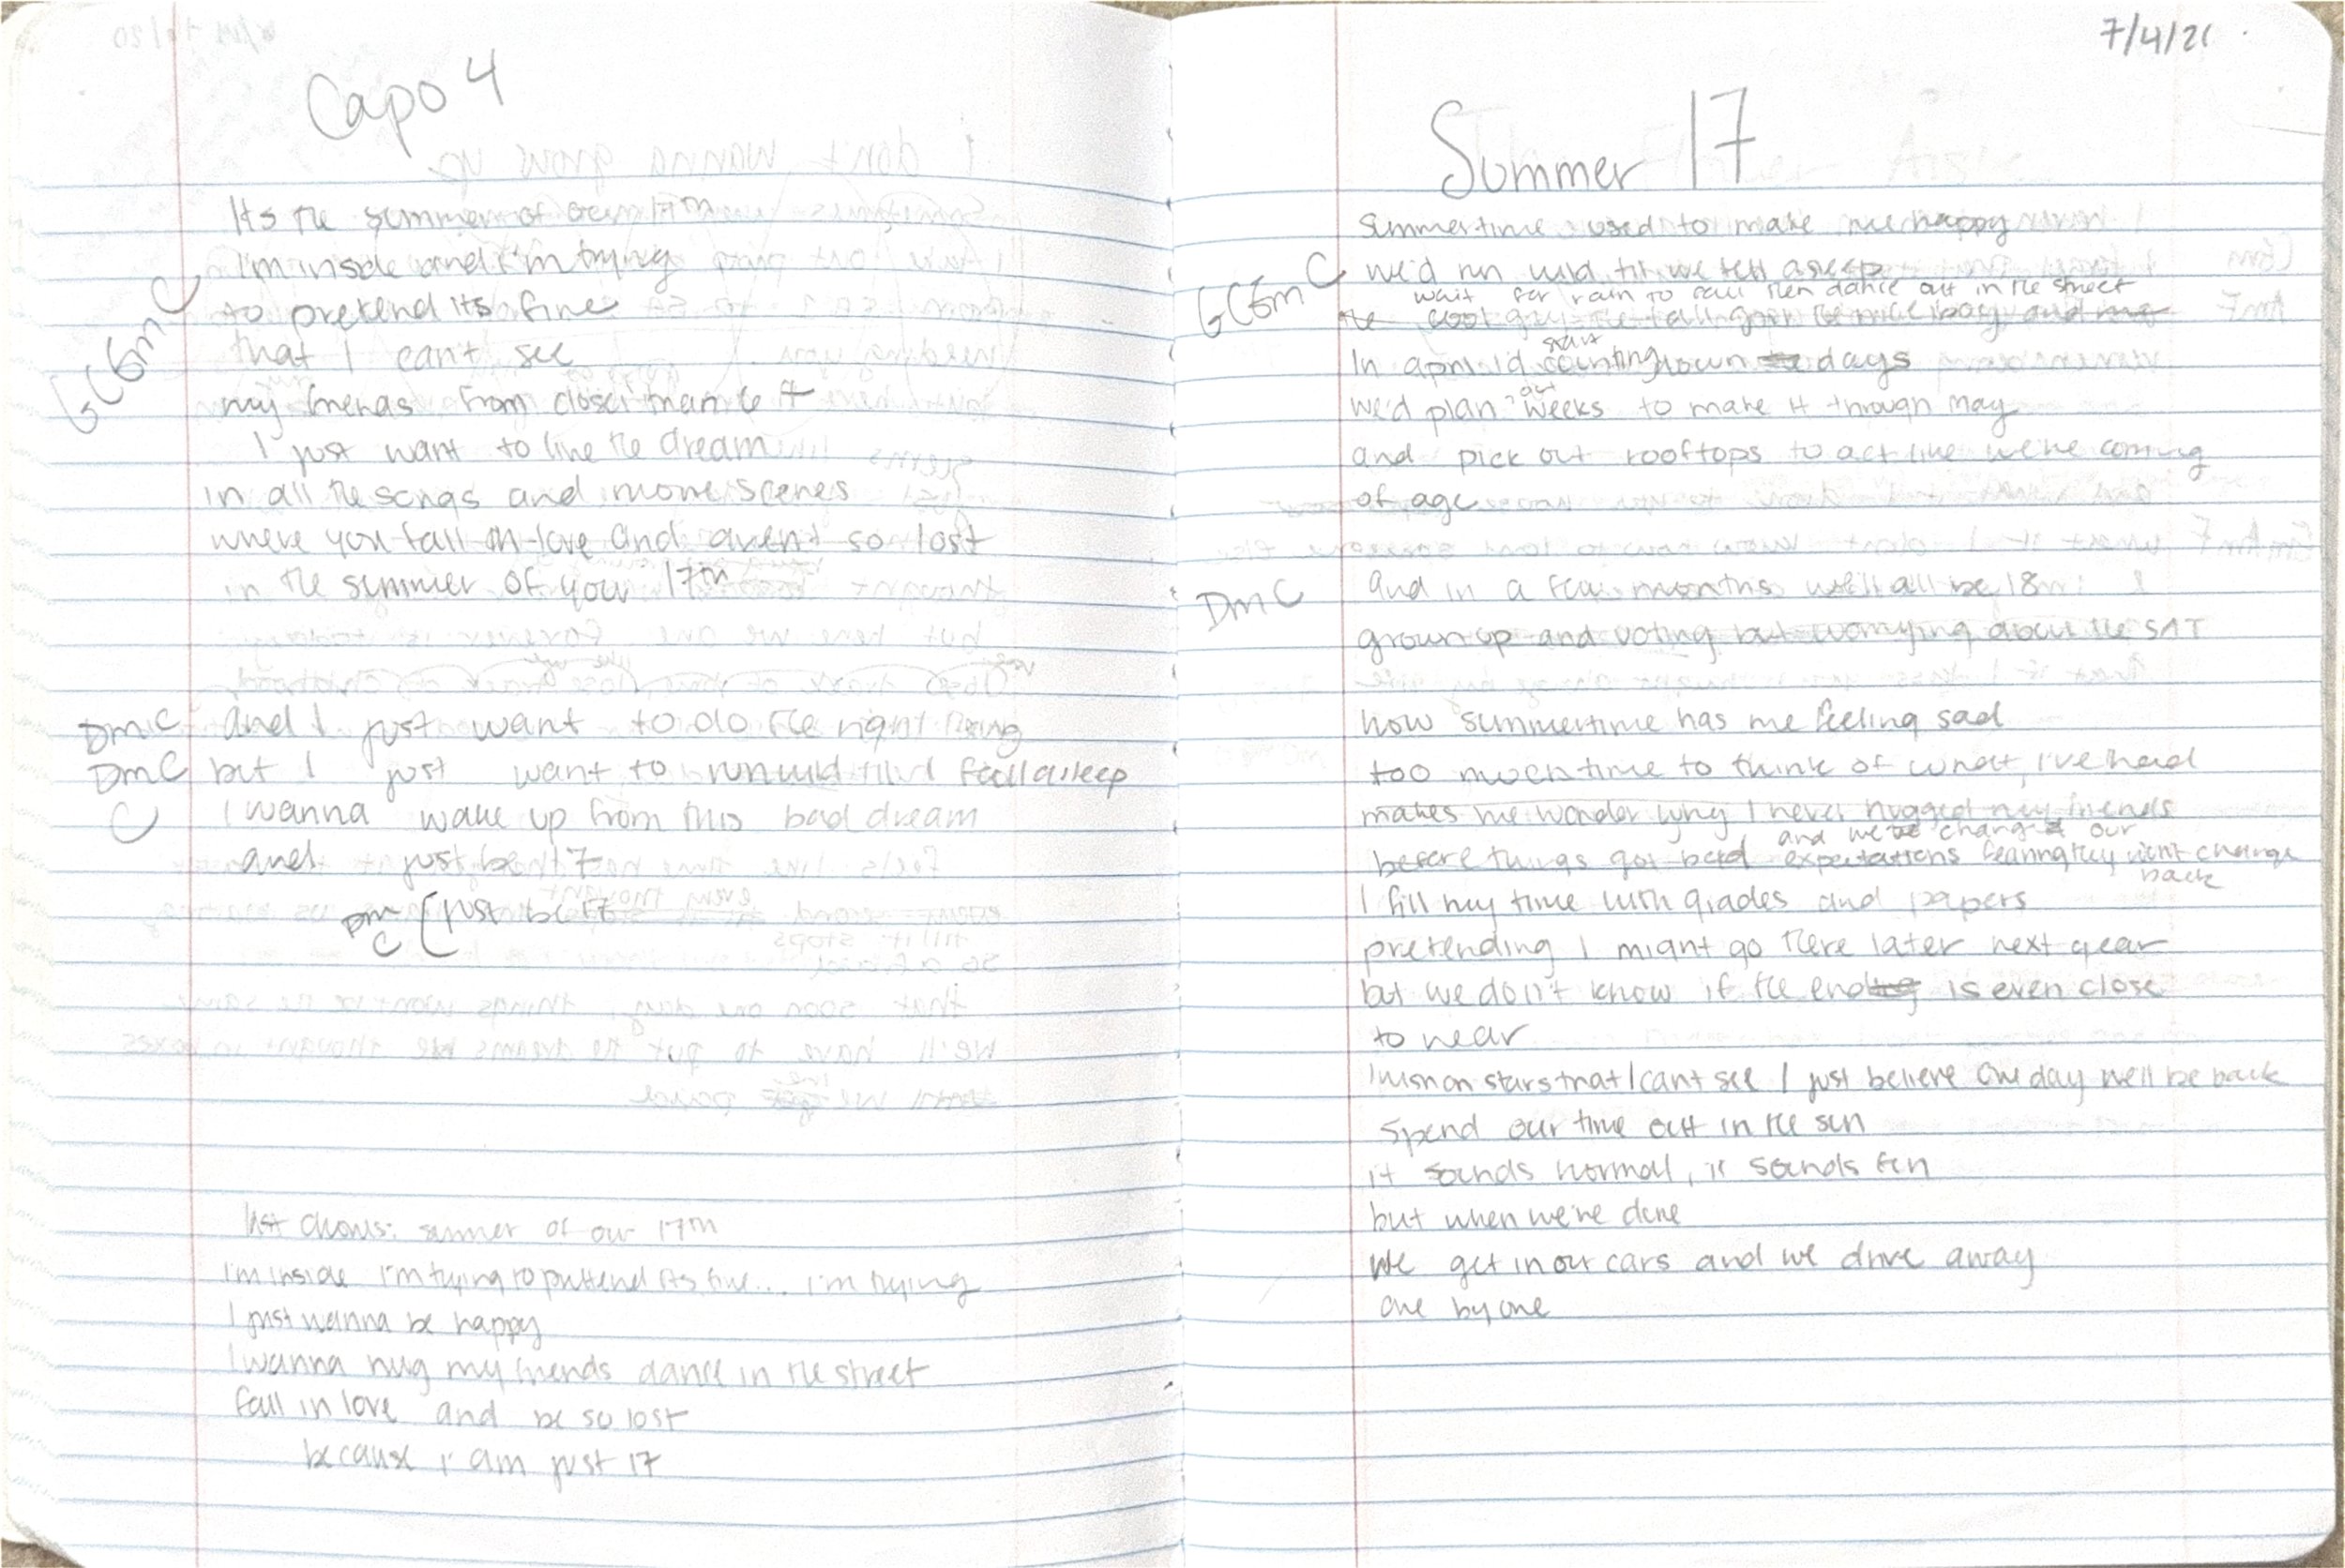 Capo 4
Its the summer of our 17th
I'm inside and I'm trying
to pretend its fine
that I can't see
my friends from closer than 6 ft
I just want to live the dream
in all the songs and movie scenes
where you fall in love and arent so lost
in the summer of your 17th
G C Em C
Dm C and I just want to do the right thing
Dm C but I just want to run wild till I fall asleep
C I wanna wake up from this bad dream
and just be 17
Dm C [just be 17
last chorus: summer of our 17th
I'm inside I'm trying to pretend its fine... I'm trying
I just wanna be happy
I wanna hug my friends dance in the street
fall in love and be so lost
because I am just 17
7/4/21
Summer 17
Summertime used to make me happy
G C Em C we'd run wild til we fell asleep
wait for rain to fall then dance out in the street
the cool guy the and me
In april I'd start counting down days
we'd plan out weeks to make it through may
and pick out rooftops to act like we're coming
of age
Dm C and in a few months we'll all be 18
grown up and voting but worrying about the SAT
now summertime has me feeling sad
too much time to think of what I've had
makes me wonder why I never hugged my friends
and we change our
before things got bad expectations fearing they wont change
back
I fill my time with grades and papers
pretending I might go there later next year
but we don't know if the end is even close
to near
I wish on stars that I cant see I just believe one day we'll be back
spend our time out in the sun
it sounds normal, it sounds fun
but when we're done
we get in our cars and we drive away
one by one